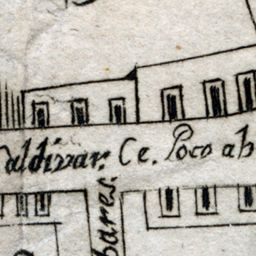 aldivar. Ce. Poco ab
bares.